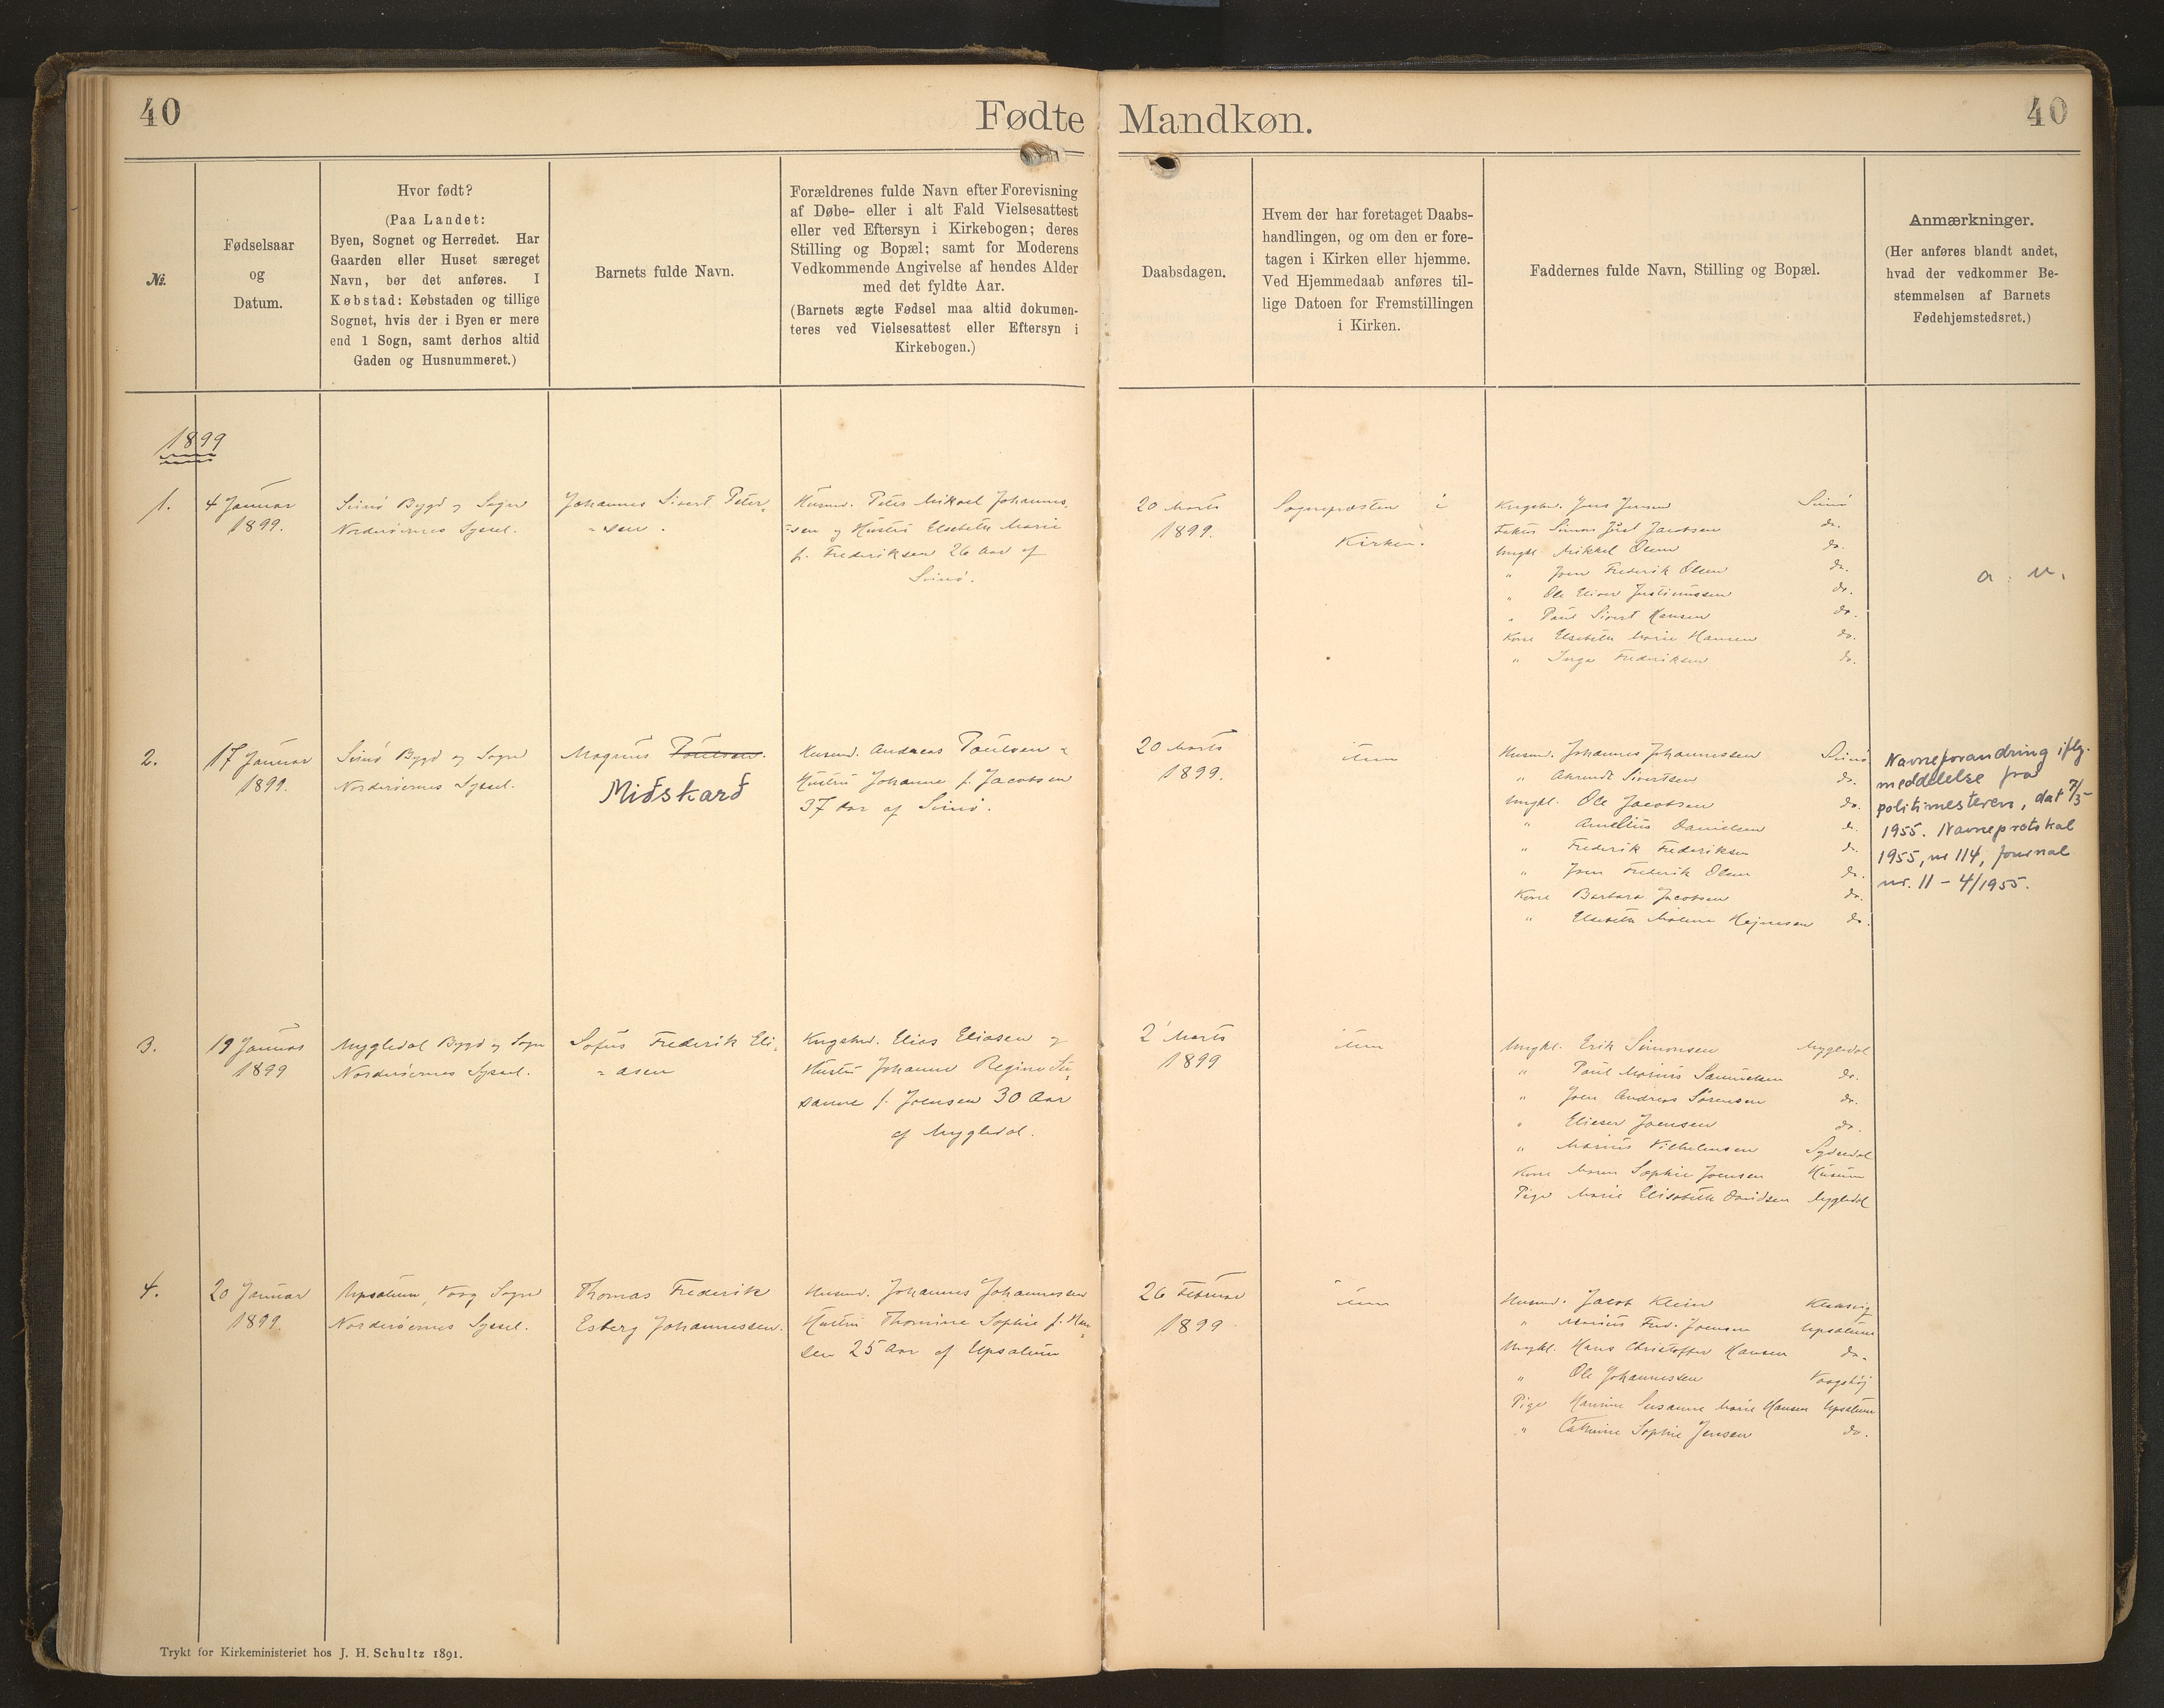 40
Fødte Mandkøn.
40
№.
Fødselsaar
og
Datum.
Hvor født?
(Paa Landet:
Byen, Sognet og Herredet. Har
Gaarden eller Huset særeget
Navn, bør det anføres. I
Købstad: Købstaden og tillige
Sognet, hvis der i Byen er mere
end 1 Sogn, samt derhos altid
Gaden og Husnummeret.)
Barnets fulde Navn.
Forældrenes fulde Navn efter Forevisning
af Døbe- eller i alt Fald Vielsesattest
eller ved Eftersyn i Kirkebogen; deres
Stilling og Bopæl; samt for Moderens
Vedkommende Angivelse af hendes Alder
med det fyldte Aar.
(Barnets ægte Fødsel maa altid dokumen-
teres ved Vielsesattest eller Eftersyn i
Kirkebogen.)
Daabsdagen.
Hvem der har foretaget Daabs-
handlingen, og om den er fore-
tagen i Kirken eller hjemme.
Ved Hjemmedaab anføres til-
lige Datoen for Fremstillingen
i Kirken.
Faddernes fulde Navn, Stilling og Bopæl.
Anmærkninger.
(Her anføres blandt andet,
hvad der vedkommer Be-
stemmelsen af Barnets
Fødehjemstedsret.)
1899
1.
4 Januar
1899.
Svinø Bygd og Sogn
Norderøernes Syssel.
Johannes Sivert Peter-
-sen.
Husmd. Peter Mikael Johannes-
-sen og Hustru Elsebeth Marie
f. Frederiksen 26 Aar af
Svinø.
20 Marts
1899.
Sognepræsten i
Kirken.
Kngsbd. Jens Jensen Svinø
Simon Juel Jacobsen do.
Ungkl. Mikkel Olsen do.
" Joen Frederik Olsen do.
" Ole Eliver Justinussen do.
" Paul Sivert Hansen do.
Kone Elsebeth Marie Hansen do.
" Inga Frederiksen do.
a. n.
2.
17 Januar
1899.
Svinø Bygd og Sogn
Norderøernes Syssel.
Magnus Poulsen.
Miðskarð
Husmd. Andreas Poulsen og
Hustru Johanne f. Jacobsen
37 Aar af Svinø.
20 Marts
1899.
item
Husmd. Johannes Johannessen Svinø
" Ahrendt Sivertsen do.
Ungkl. Ole Jacobsen do.
" Amelius Danielsen do.
" Frederik Frederiksen do.
" Joen Frederik Olsen do.
Kone Barbara Jacobsen do.
" Elsebeth Malene Hejnesen do.
Navneforandring iflg.
meddelelse fra
politimesteren, dat 7/5-
1955. Navneprotokol
1955, nr 114, Journal
nr. 11 - 4/1955.
3.
19 Januar
1899
Mygledal Bygd og Sogn
Norderøernes Syssel.
Sofus Frederik Eli-
-asen
Kngsbd. Elias Eliasen og
Hustru Johanne Regine Su-
sanne f. Joensen 30 Aar
af Mygledal.
2' Marts
1899
item
Ungkl. Erik Simonsen Mygledal
" Paul Marius Samuelsen do.
" Joen Andreas Sørensen do.
" Elieser Joensen do.
" Marius Vilhelmsen Syderdal
Kone Maren Sophie Joensen Husum
Pige Marie Elisabeth Davidsen Mygledal
4.
20 Januar
1899.
Upsalum, Vaag Sogn
Norderøernes Syssel.
Thomas Frederik
Esberg Johannessen.
Husmd. Johannes Johannessen
Hustru Thomine Sophie f. Han-
sen 25 Aar af Upsalum
26 Februar
1899
item
Husmd. Jacob Klein Klaksvig
" Marius Fred. Joensen Upsalum
Ungkl. Hans Christoffer Hansen do.
" Ole Johannessen Vaagsbøj
Pige Hansine Susanne Marie Hansen Upsalum
" Cathrine Sophie Jensen do.
Trykt for Kirkeministeriet hos J. H. Schultz 1891.